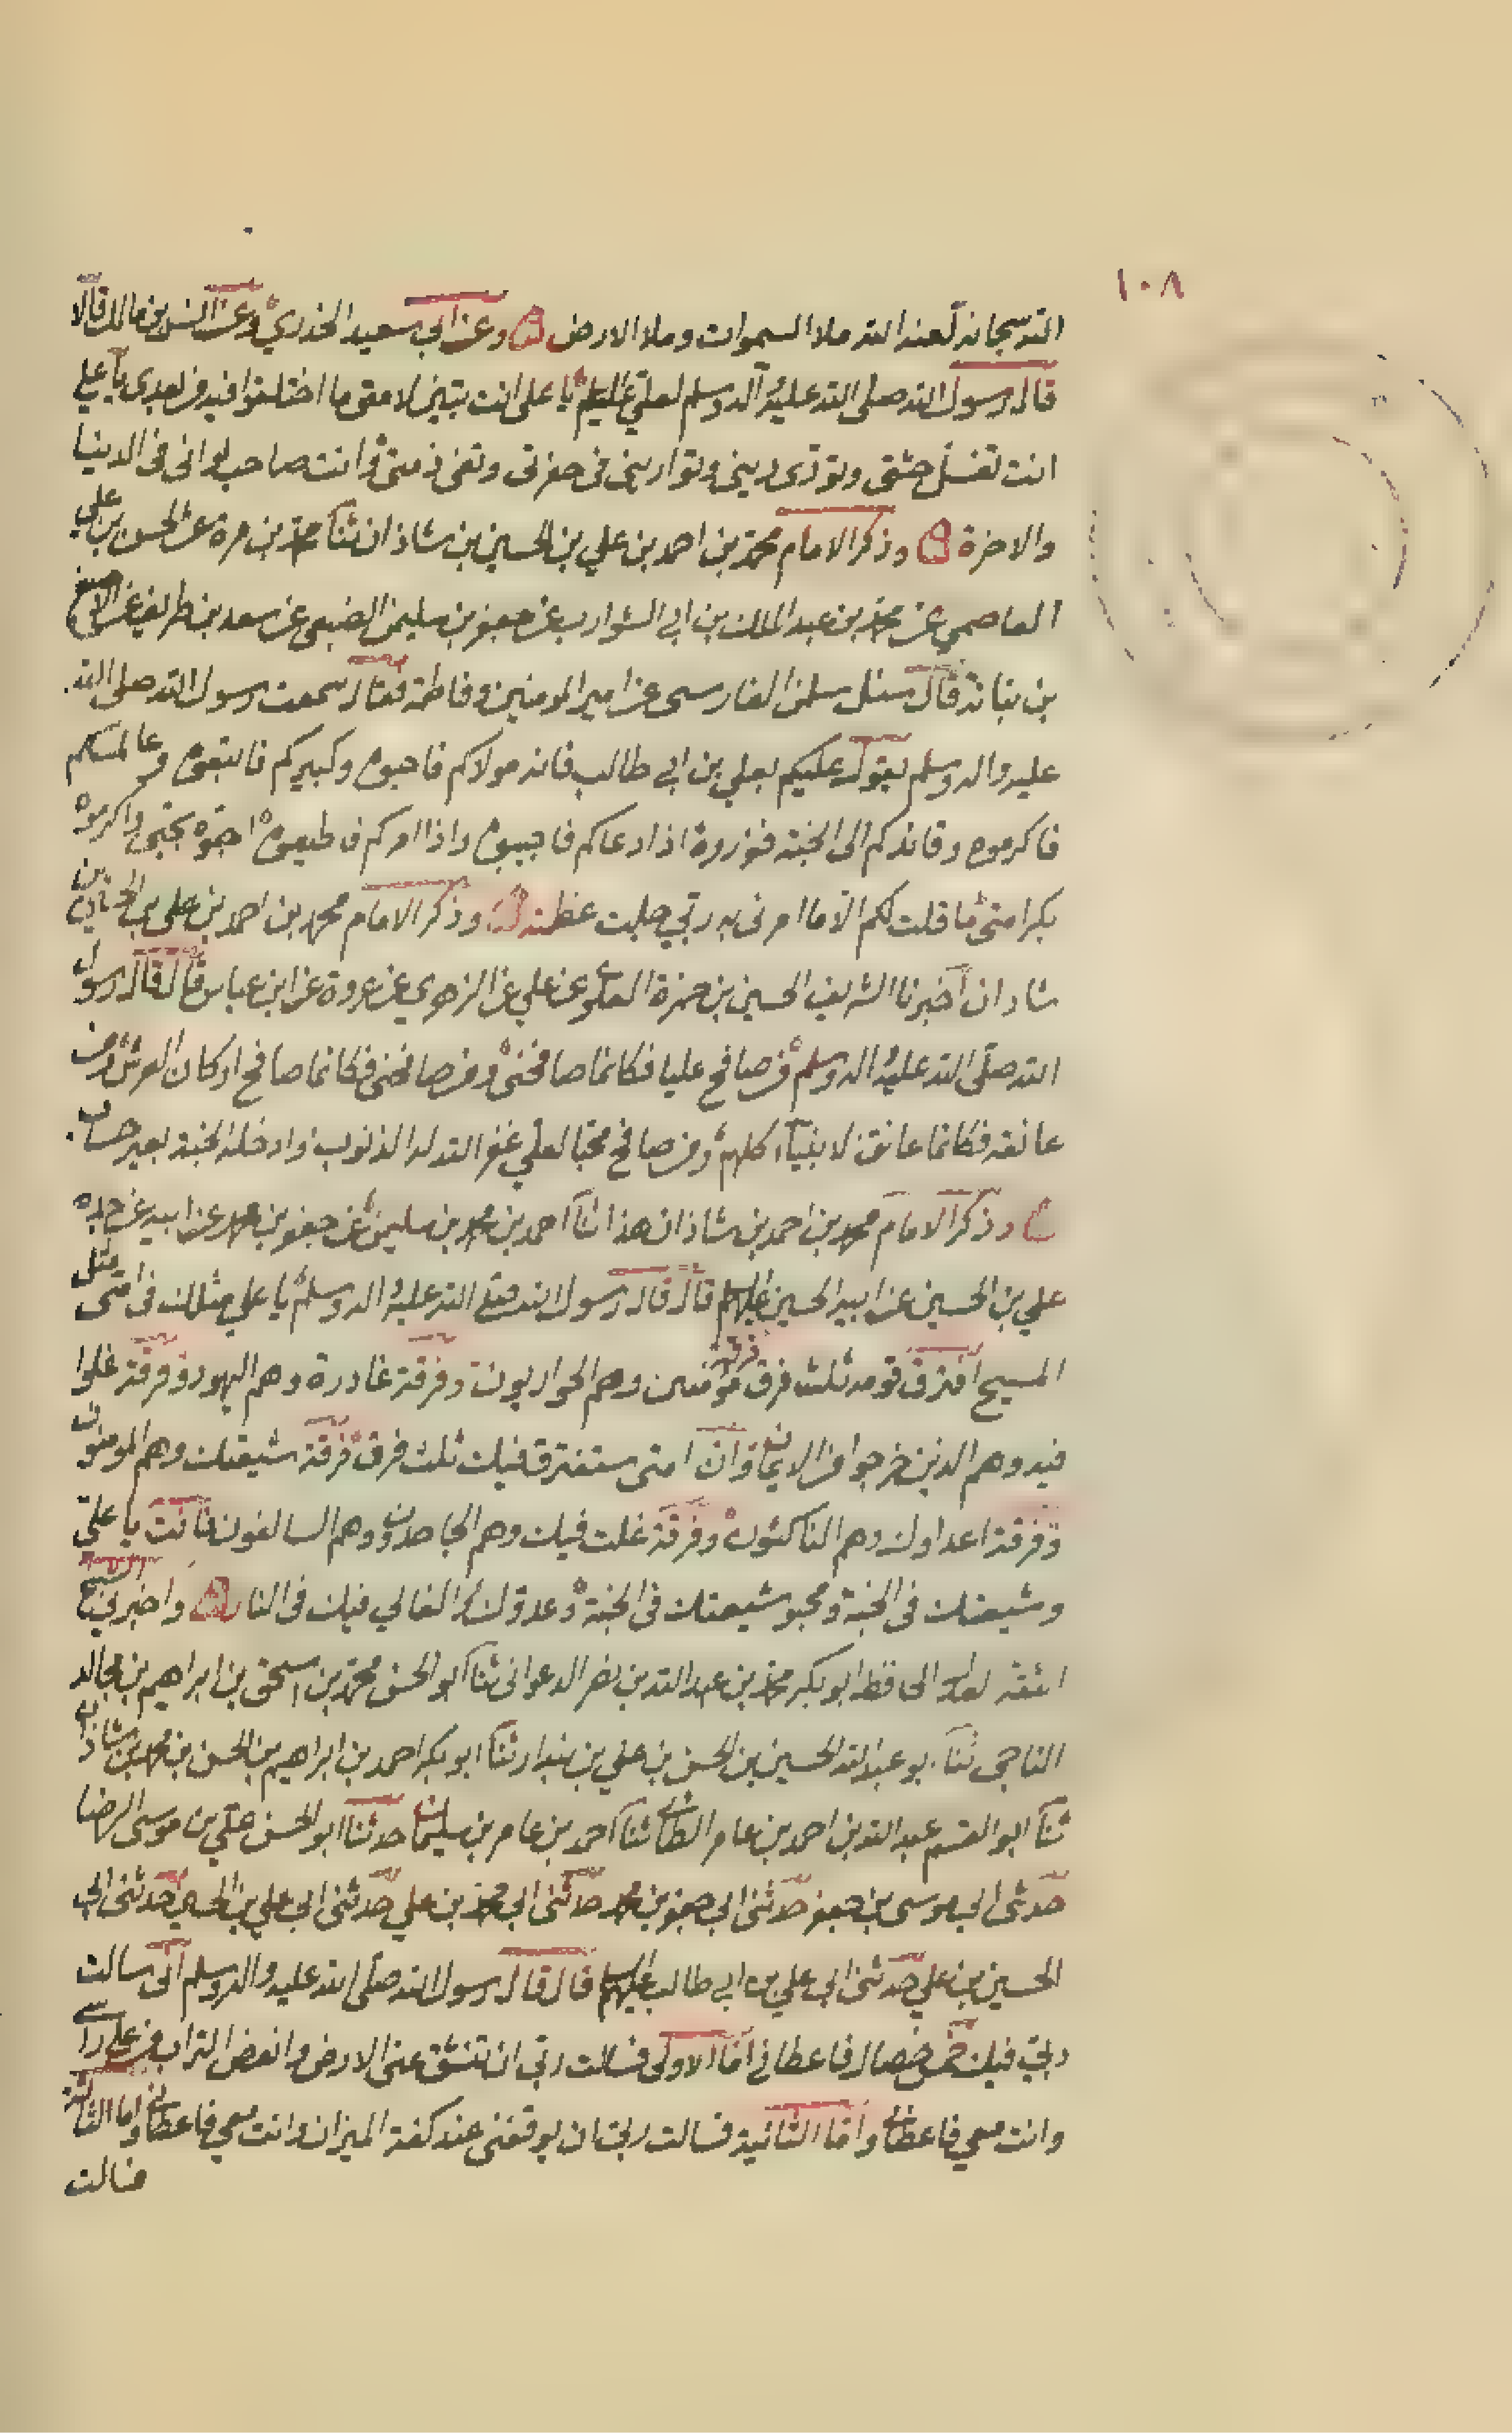 ١٠٨
الله سبحانه لعنه الله ملا السموات وملا الارض وعن ابي سعيد الخدري وعن انس بن مالك قالا
قال رسول الله صلى الله عليه وآله وسلم لعلي عليه السلم يا على انت تبين لامتى ما اختلفوا فيه من بعدى يا علي
انت تغسل جثتى وتؤدى دينى وتوارينى فى حفرتى وتفى بذمتى وانت صاحب لوائى فى الدنيا
والاخرة وذكر الامام محمد بن احمد بن علي بن الحسين بن شاذان ثنا محمد بن مرة عن الحسن بن علي
العاصمي عن محمد بن عبد الملك بن ابي الشوارب عن جعفر بن سليمن الضبعى عن سعد بن طريف عن الاصبغ
بن نباتة قال سئل سلمن الفارسى عن امير المومنين وفاطمة فقال سمعت رسول الله صلى الله
عليه واله وسلم يقول عليكم بعلي بن ابي طالب فانه مولاكم فاحبوه وكبيركم فاتبعوه وعالمكم
فاكرموه وقائدكم الى الجنة فعزروه اذا دعاكم فاجيبوه واذا امركم فاطيعوه احبوه بحبى واكرموه
بكرامتى ما قلت لكم الا ما امرنى به ربي جلت عظمته وذكر الامام محمد بن احمد بن على بن الحسين بن
شاذان أخبرنا الشريف الحسين بن حمزة العلوى عن علي عن الزهري عن عروة عن ابن عباس قال قال رسول
الله صلى الله عليه واله وسلم من صافح عليا فكانما صافحنى ومن صافحنى فكانما صافح اركان العرش ومن
عانقه فكانما عانق الانبيآء كلهم ومن صافح محبا لعلي غفر الله له الذنوب وادخله الجنة بغير حساب
وذكر الامام محمد بن احمد بن شاذان هذا ثنا احمد بن محمد بن سليمن عن جعفر بن محمد عن ابيه عن جده
علي بن الحسين عن ابيه الحسين عليهم السلم قال قال رسول الله صلى الله عليه واله وسلم يا علي مثلك فى امتى مثل
المسيح افترق قومه ثلث فرق فرقة مؤمنين وهم الحواريون وفرقة غادرة وهم اليهود وفرقة غلوا
فيه وهم الذين خرجوا من الايمان وان امتى ستفترق فيك ثلث فرق فرقة شيعتك وهم المومنون
وفرقة اعداوك وهم الناكثون وفرقة غلت فيك وهم الجاحدون وهم السالفون فانت يا علي
وشيعتك فى الجنة ومحبو شيعتك فى الجنة وعدوك والغالي فيك فى النار واخبرني الشيخ
الحافظ ابو بكر محمد بن عبد الله بن نصر ثنا ابو الحسن محمد بن اسحق بن ابراهيم بن مجالد
ثنا ابو عبد الله الحسين بن الحسن بن علي بن بندار ثنا ابو بكر احمد بن ابراهيم بن الحسن بن محمد بن شاذان
ثنا ابو القسم عبد الله بن احمد بن عامر الطائي ثنا احمد بن عامر بن سليمان حدثنا ابو الحسن علي بن موسى الرضا
حدثنى ابي موسى بن جعفر حدثنى ابي جعفر بن محمد حدثنى ابي محمد بن علي حدثنى ابي علي بن الحسين حدثنى ابي
الحسين بن علي حدثنى ابي علي بن ابي طالب عليهم السلم قال قال رسول الله صلى الله عليه واله وسلم انى سالت
ربي فيك خمس خصال فاعطاني اما الاولى فسالت ربى ان تنشق عنى الارض وانفض التراب عن راسى
وانت معي فاعطاني واما الثانية فسالت ربى ان يوقفنى عند كفة الميزان وانت معي فاعطاني واما الثالثة
فسالت